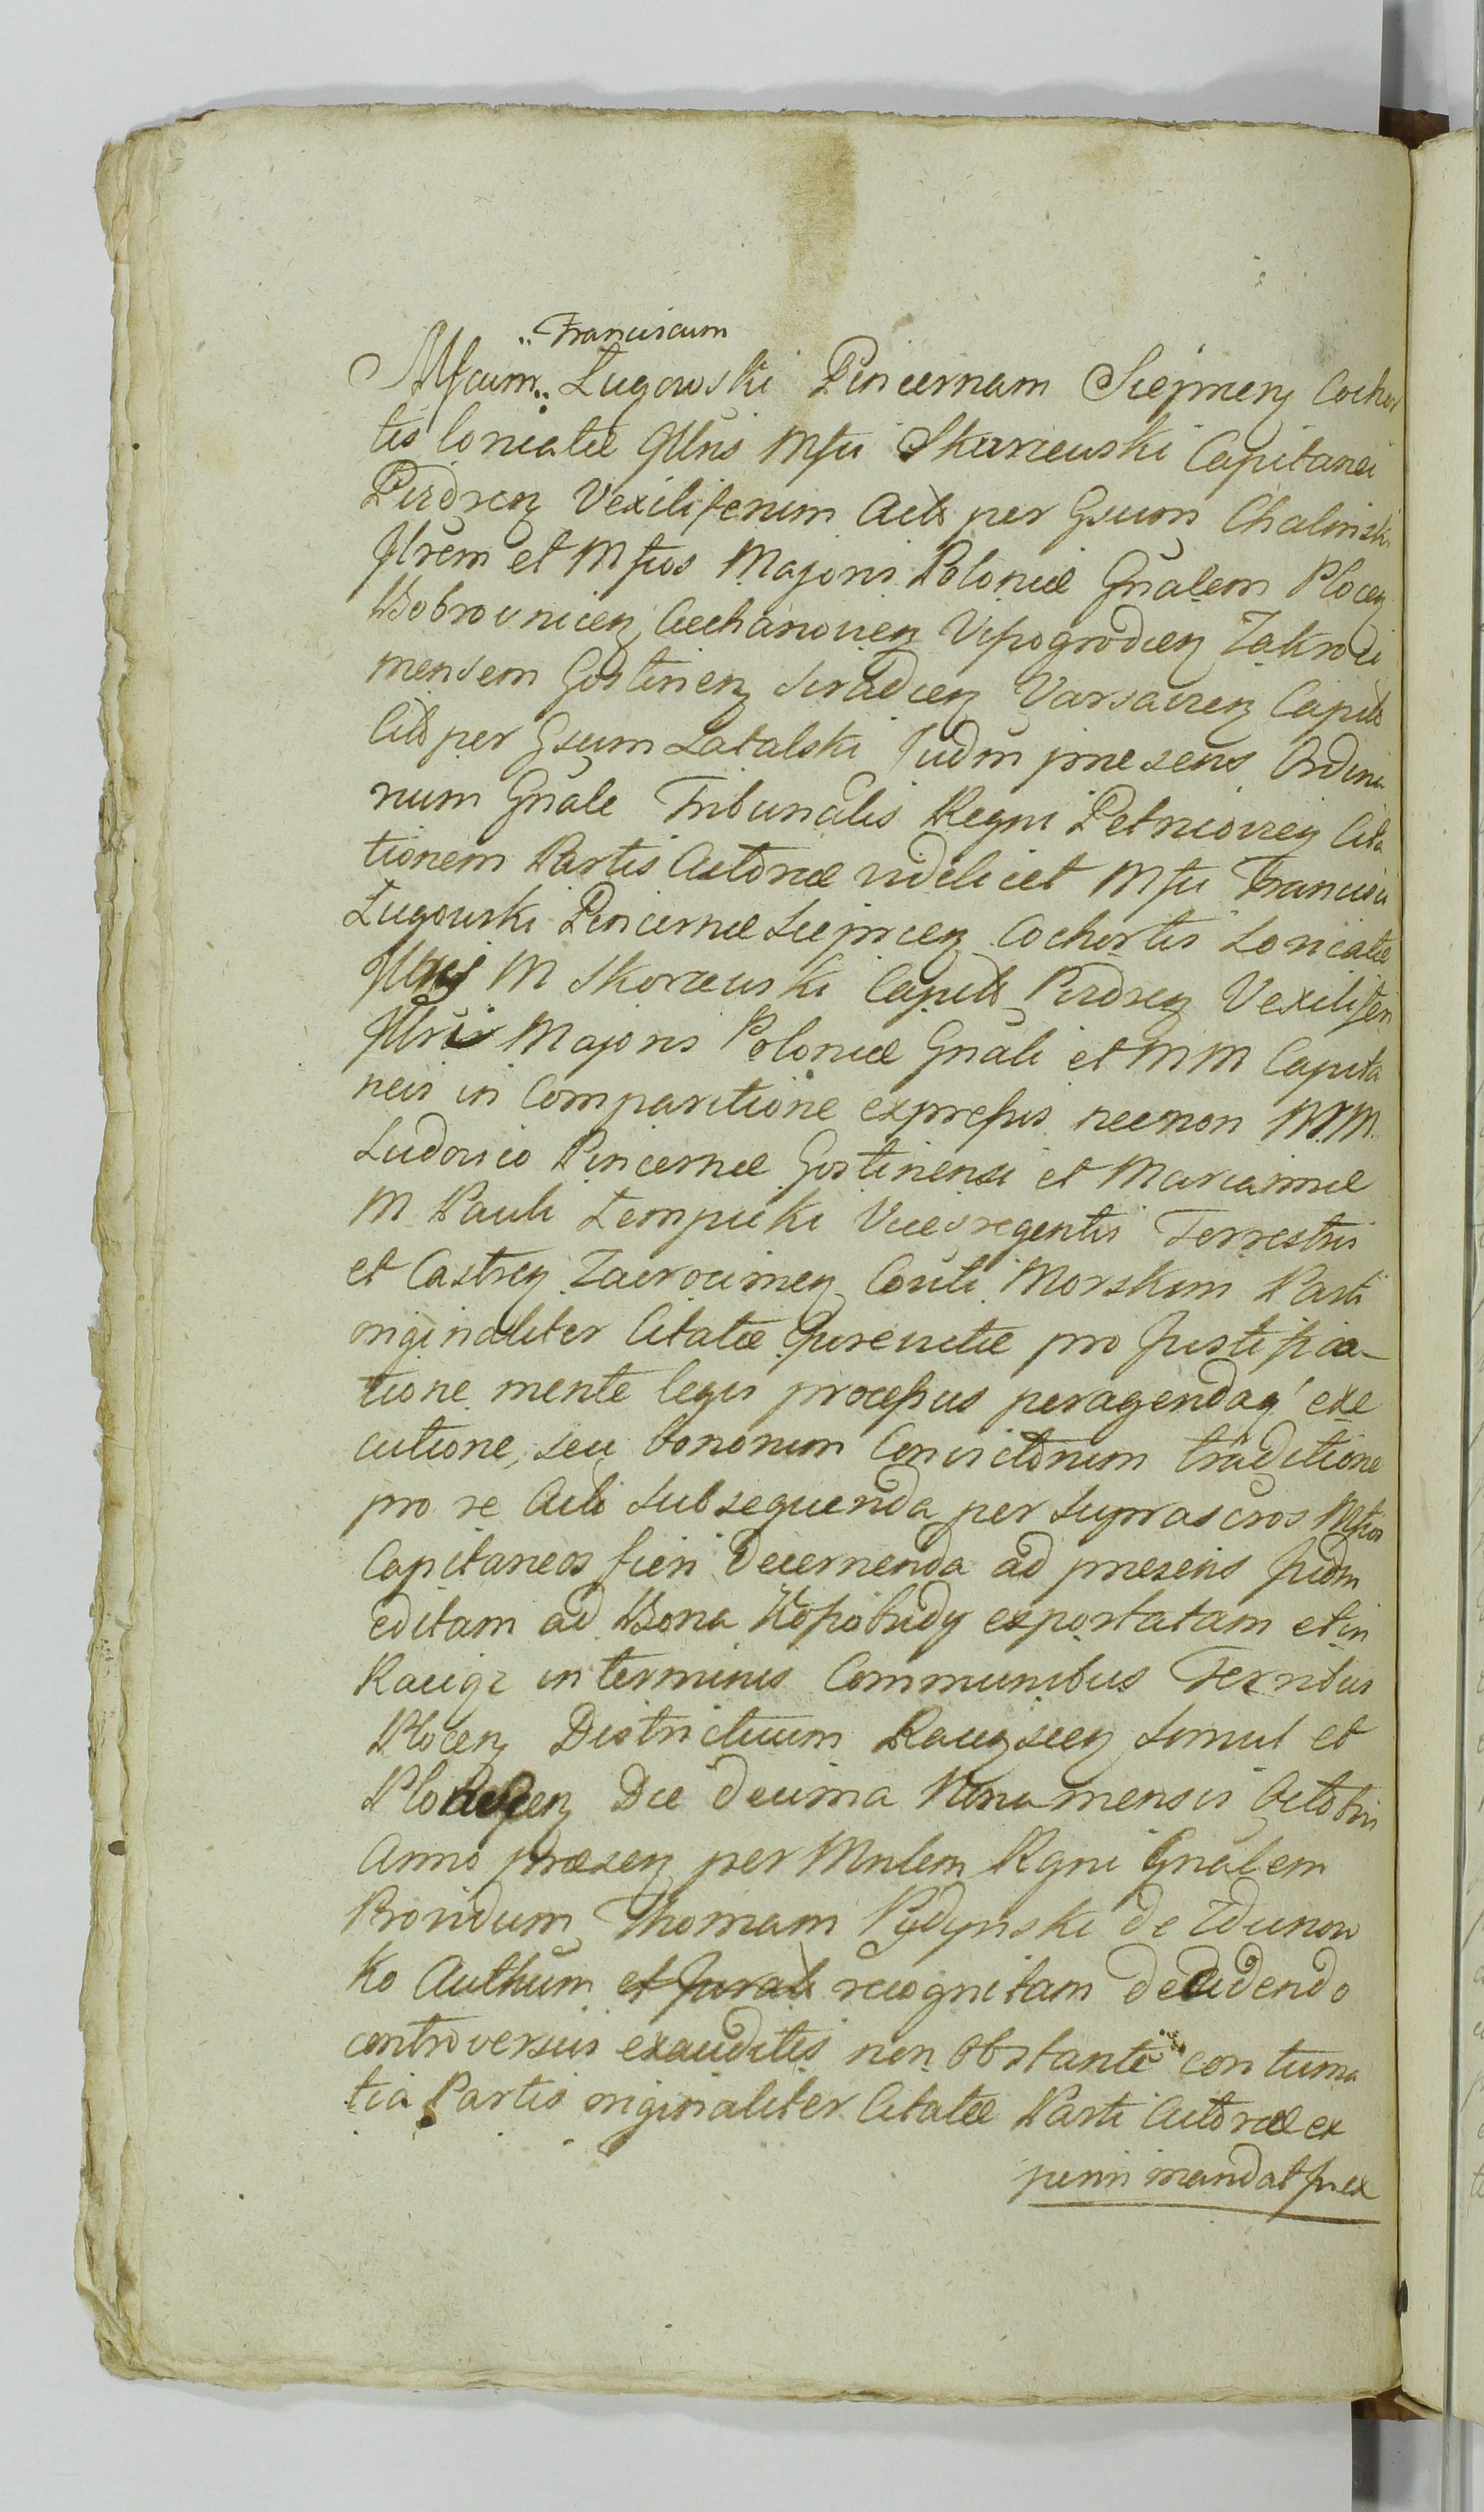 Franciscum
Mfcum Ługowski Pincernam Siepmens Cochor
tis loricatæ Illris Mfci Skorzewski Capitanei
Pizdrens Vexiliferum Act per Gsum Chalinski
Illrem et Mfcos Majoris Poloniæ Gnalem Plocens
Bobrovnicens Ciechanoviens Vissogrodiens Zakroci
mensem Gostinens Siradiens Varsaviens Capit
Cit per Gsum Latalski Judm præsens Ordina
rium Gnale Tribunalis Regni Petricoviens Cita
tionem Partis Actoreæ videlicet Mfci Francisci
Ługowski Pincernæ Sieprcens Cochortis Loricatæ
Illris M Skorzewski Capit Pizdrens Vexiliferi
Illri Majoris Poloniæ Gnali et MM Capita
neis in Comparitione expressis necnon MM
Ludovico Pincernæ Gostinensi et Mariannæ
M Pauli Łempicki Vicesregentis Terrestris
et Castrens Zacrocimens Conti Morskim Parti
originaliter Citatæ pro Justifica-
tione mente legis processus peragendaq exe
cutione, seu bonorum Convictorum traditione
pro re Acti subsequenda per suprascros Mfcos
Capitaneos fieri decernenda ad præsens Judm
editam ad Bona exportatam et in
Raciąż in terminis Communibus Terribus
Plocens Districtuum Raciążsiens simul et
Die decima Nona mensis Octobris
Anno præsen per Mnlem Rgni Gnalem
Providum Thomam Pydynski de Zdunow
ko Authum et Jurat recognitam decidendo
controversiis exauditis non obstante contuma
tia Partis originaliter Citatæ Parti Actoreæ ex
periri mandat Jurex